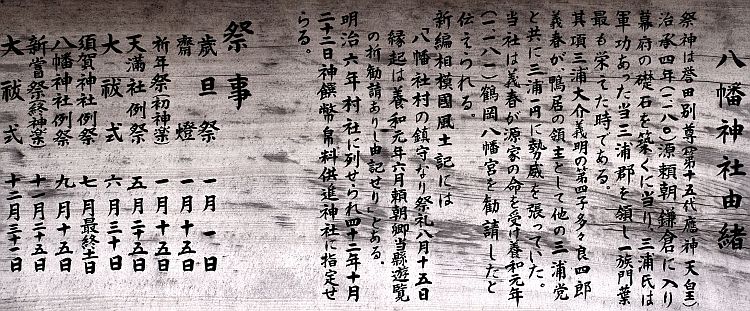 八幡神社由緒
祭神は誉田別尊(第十五代應神天皇)
治承四年(一一八〇)源頼朝、鎌倉に入り
幕府の礎石を築くに当り、三浦氏は
軍功あった当三浦郡を領し一族門葉
最も栄えた時である。
其項三浦大介義明の第四子多々良四郎
義春が、鴨居の領主として他の三浦党
と共に三浦一円に勢威を張っていた。
当社は義春が源家の命を受け養和元年
(一一八一)鶴岡八幡宮を勧請したと
伝えられる。
新編相模國風土記には
「八幡社村の鎮守なり祭礼八月十五日
縁起は養和元年六月頼朝卿当縣遊覧
の折勧請ありし由記せり」である。
明治六年村社に列せられ四十二年十月
二十二日神饌幣帛料供進神社に指定せ
らる。
祭事
歳旦祭 一月一日
齋燈 一月十五日
祈年祭(初神楽) 一月十五日
天満社例祭 五月二十五日
大祓式 六月三十日
須賀神社例祭 七月最終土日
八幡神社例祭 九月十五日
新嘗祭(終神楽) 十一月二十三日
大祓式 十二月三十一日